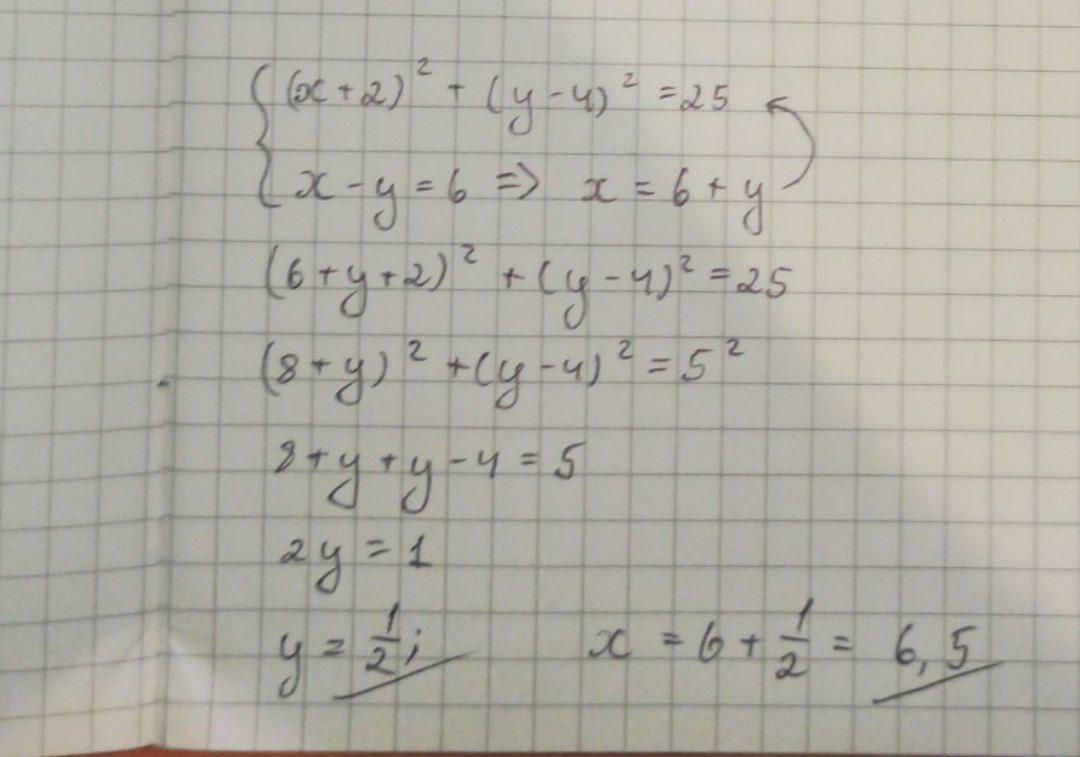 (x+2)² + (y-4)² = 25
x - y = 6 => x = 6 + y
(6+y+2)² + (y-4)² = 25
(8+y)² + (y-4)² = 5²
8+y+y-4 = 5
2y = 1
y = 1/2; x = 6 + 1/2 = 6,5